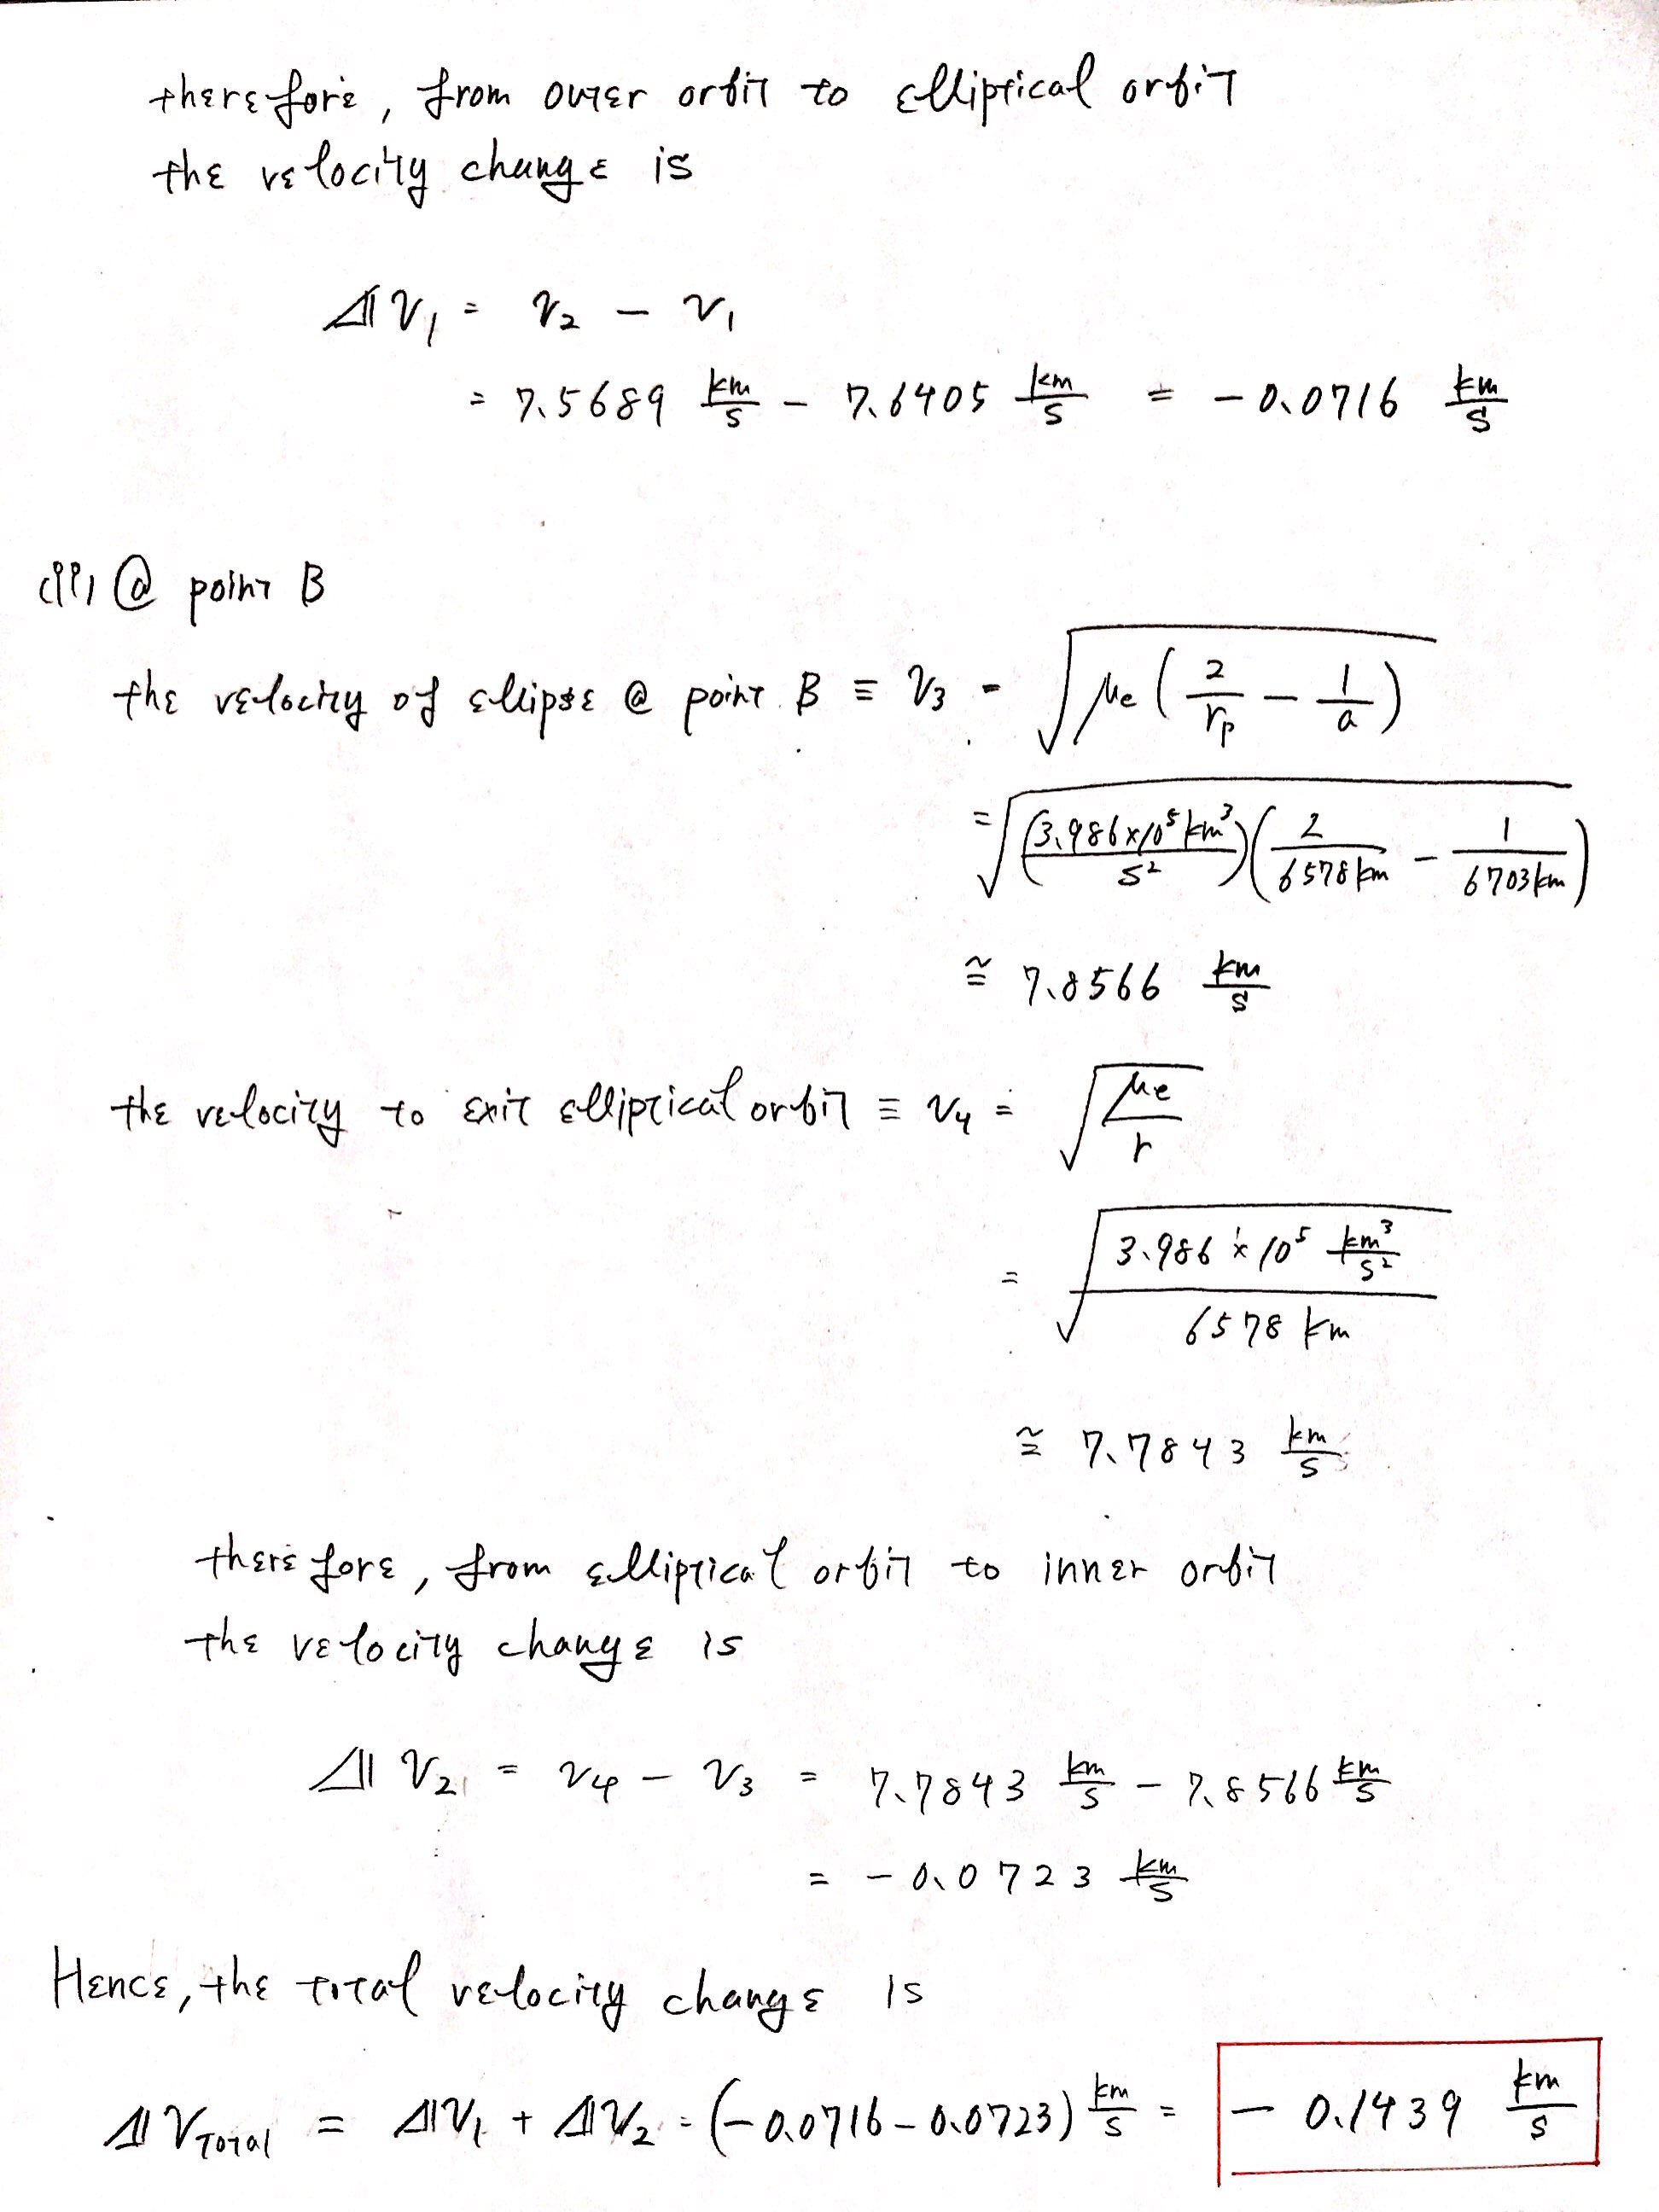 therefore, from outer orbit to elliptical orbit
the velocity change is
ΔV₁ = v₂ − v₁
= 7.5689 km/s − 7.6405 km/s = −0.0716 km/s
(ii) @ point B
the velocity of ellipse @ point B ≡ v₃ = √(μe (2/rp − 1/a))
= √((3.986×10⁵ km³/s²)(2/6578km − 1/6703km))
≅ 7.8566 km/s
the velocity to exit elliptical orbit ≡ v₄ = √(μe/r)
= √(3.986 × 10⁵ km³/s² / 6578 km)
≅ 7.7843 km/s
therefore, from elliptical orbit to inner orbit
the velocity change is
ΔV₂ = v₄ − v₃ = 7.7843 km/s − 7.8566 km/s
= −0.0723 km/s
Hence, the total velocity change is
ΔV_Total = ΔV₁ + ΔV₂ = (−0.0716 − 0.0723) km/s = −0.1439 km/s